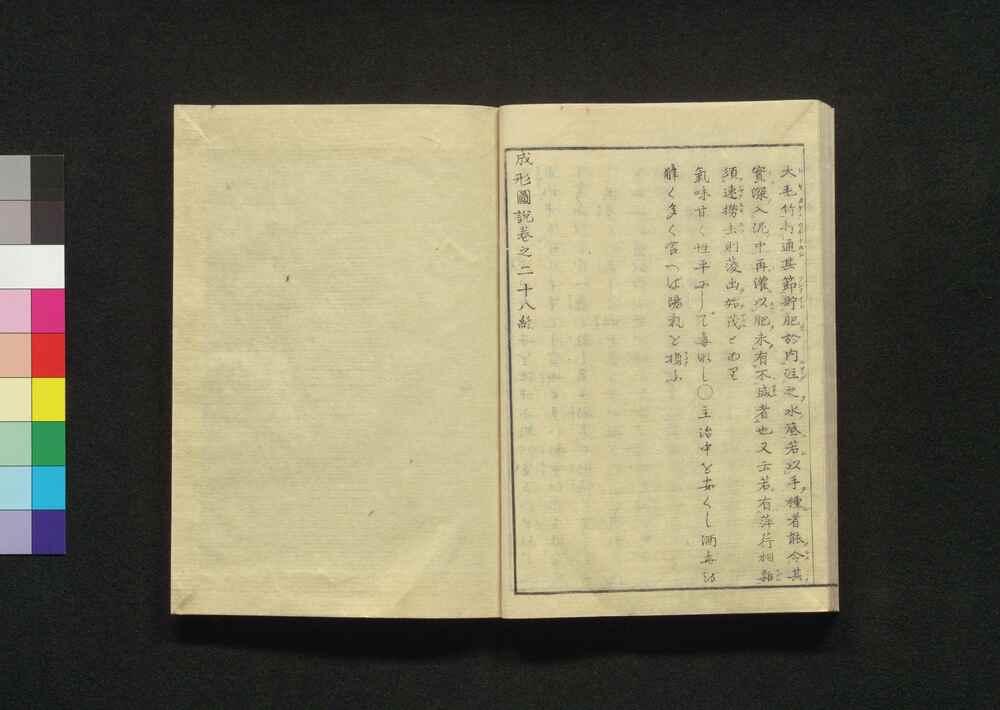 大毛竹打通其節貯肥於内注之水底若以手種者能令其
實深入泥中再灌以肥未有不盛者也又云若有萍荇相雜
須速撈去則菱出始茂と
氣味甘く性平にして毒なし〇主治中を安くし酒毒を
解く多く食へは陽氣を損ふ
成形圖説卷之二十八終